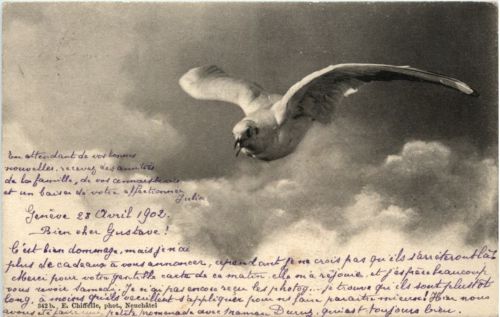 En attendant de vos bonnes
nouvelles, recevez des amitiés
de la famille, de vos connaissances
et un baiser de votre affectionnée
Julia
Genève 28 Avril 1902.
Bien cher Gustave!
C'est bien dommage, mais je n'ai
plus de cadeaux à vous annoncer, cependant je ne crois pas qu'ils s'arrêteront là.
Merci pour votre gentille carte de ce matin elle m'a réjouie, et j'espère beaucoup
vous revoir samedi. Je n'ai pas encore reçu les photog... je trouve qu'ils sont plutôt
long, à moins qu'ils veuillent s'appliquer pour ns faire paraître mieux! Hier nous
342 b. E. Chiffelle, phot., Neuchâtel
avons été faire une petite promenade avec maman qui est toujours bien.